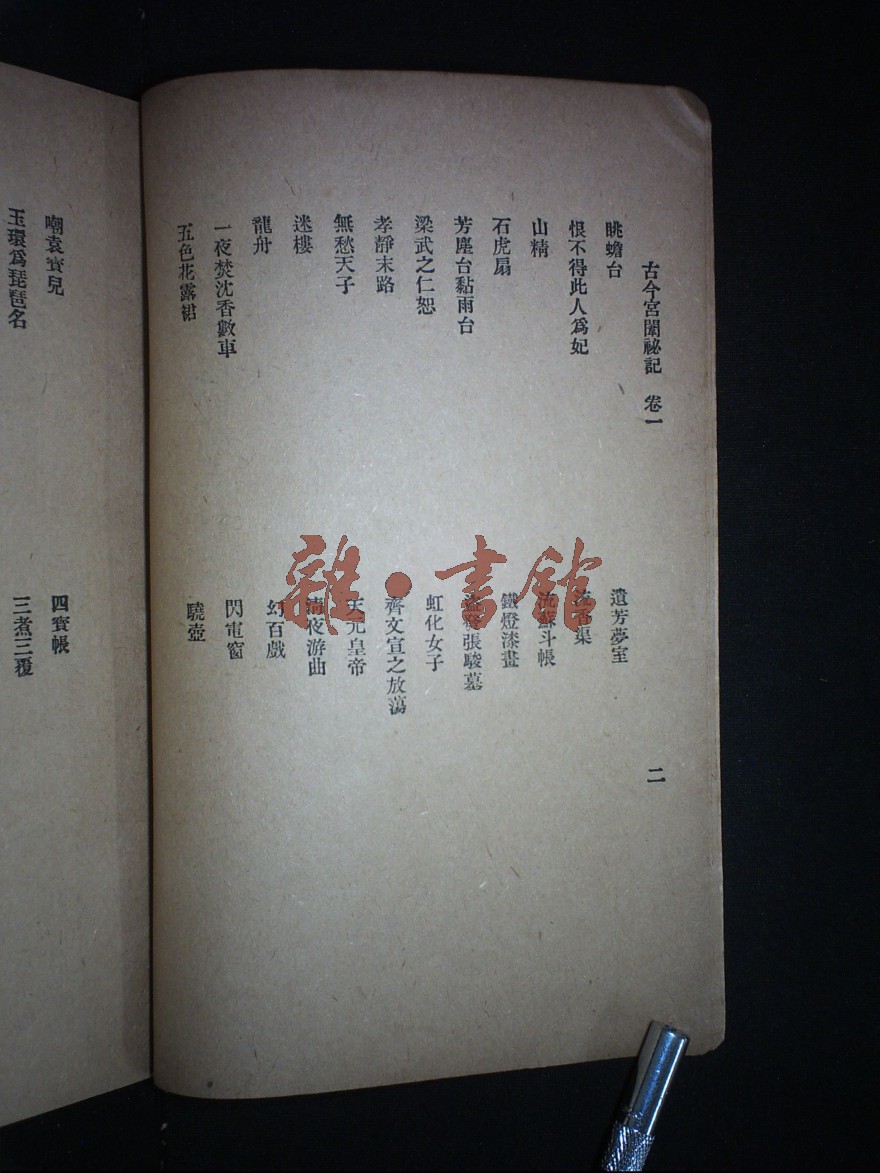 古今宮闈祕記 卷一
二
眺蟾台
遺芳夢室
恨不得此人爲妃
山精
流蘇斗帳
石虎扇
鐵燈漆畫
芳塵台黏雨台
張駿墓
梁武之仁恕
虹化女子
孝靜末路
齊文宣之放蕩
無愁天子
天元皇帝
迷樓
清夜游曲
龍舟
幻百戲
一夜焚沈香數車
閃電窗
五色花露裙
驍壺
嘲袁寶兒
四寶帳
玉環爲琵琶名
三煮三覆
雜·書館